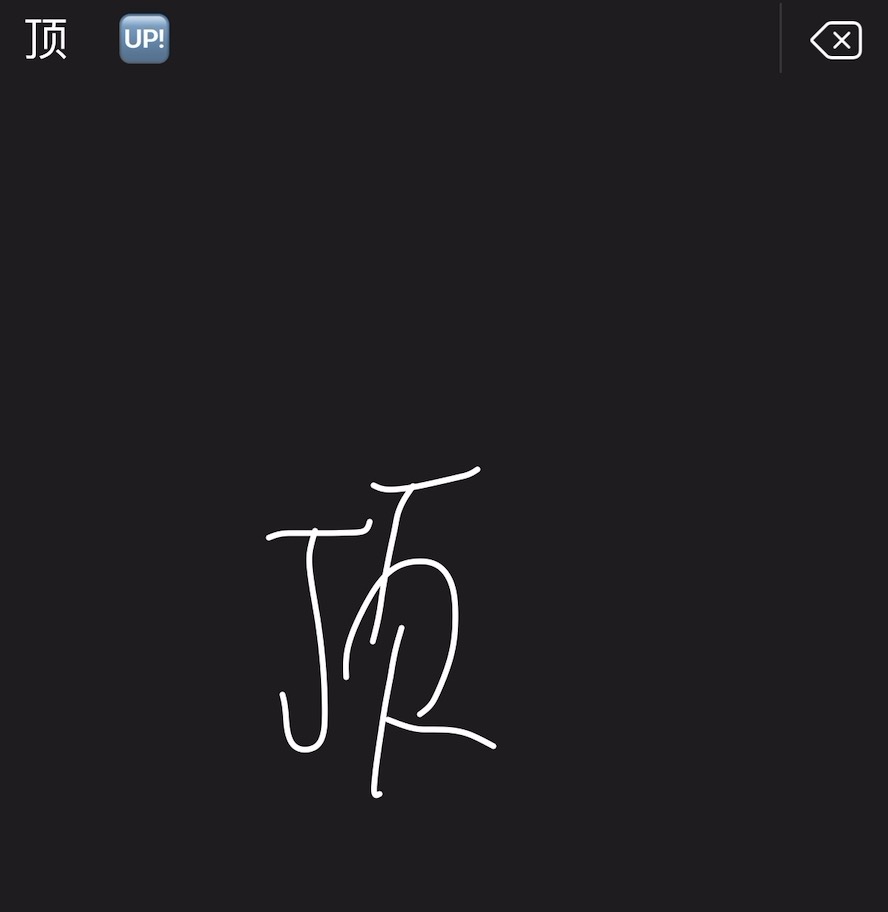 顶 UP!
顶